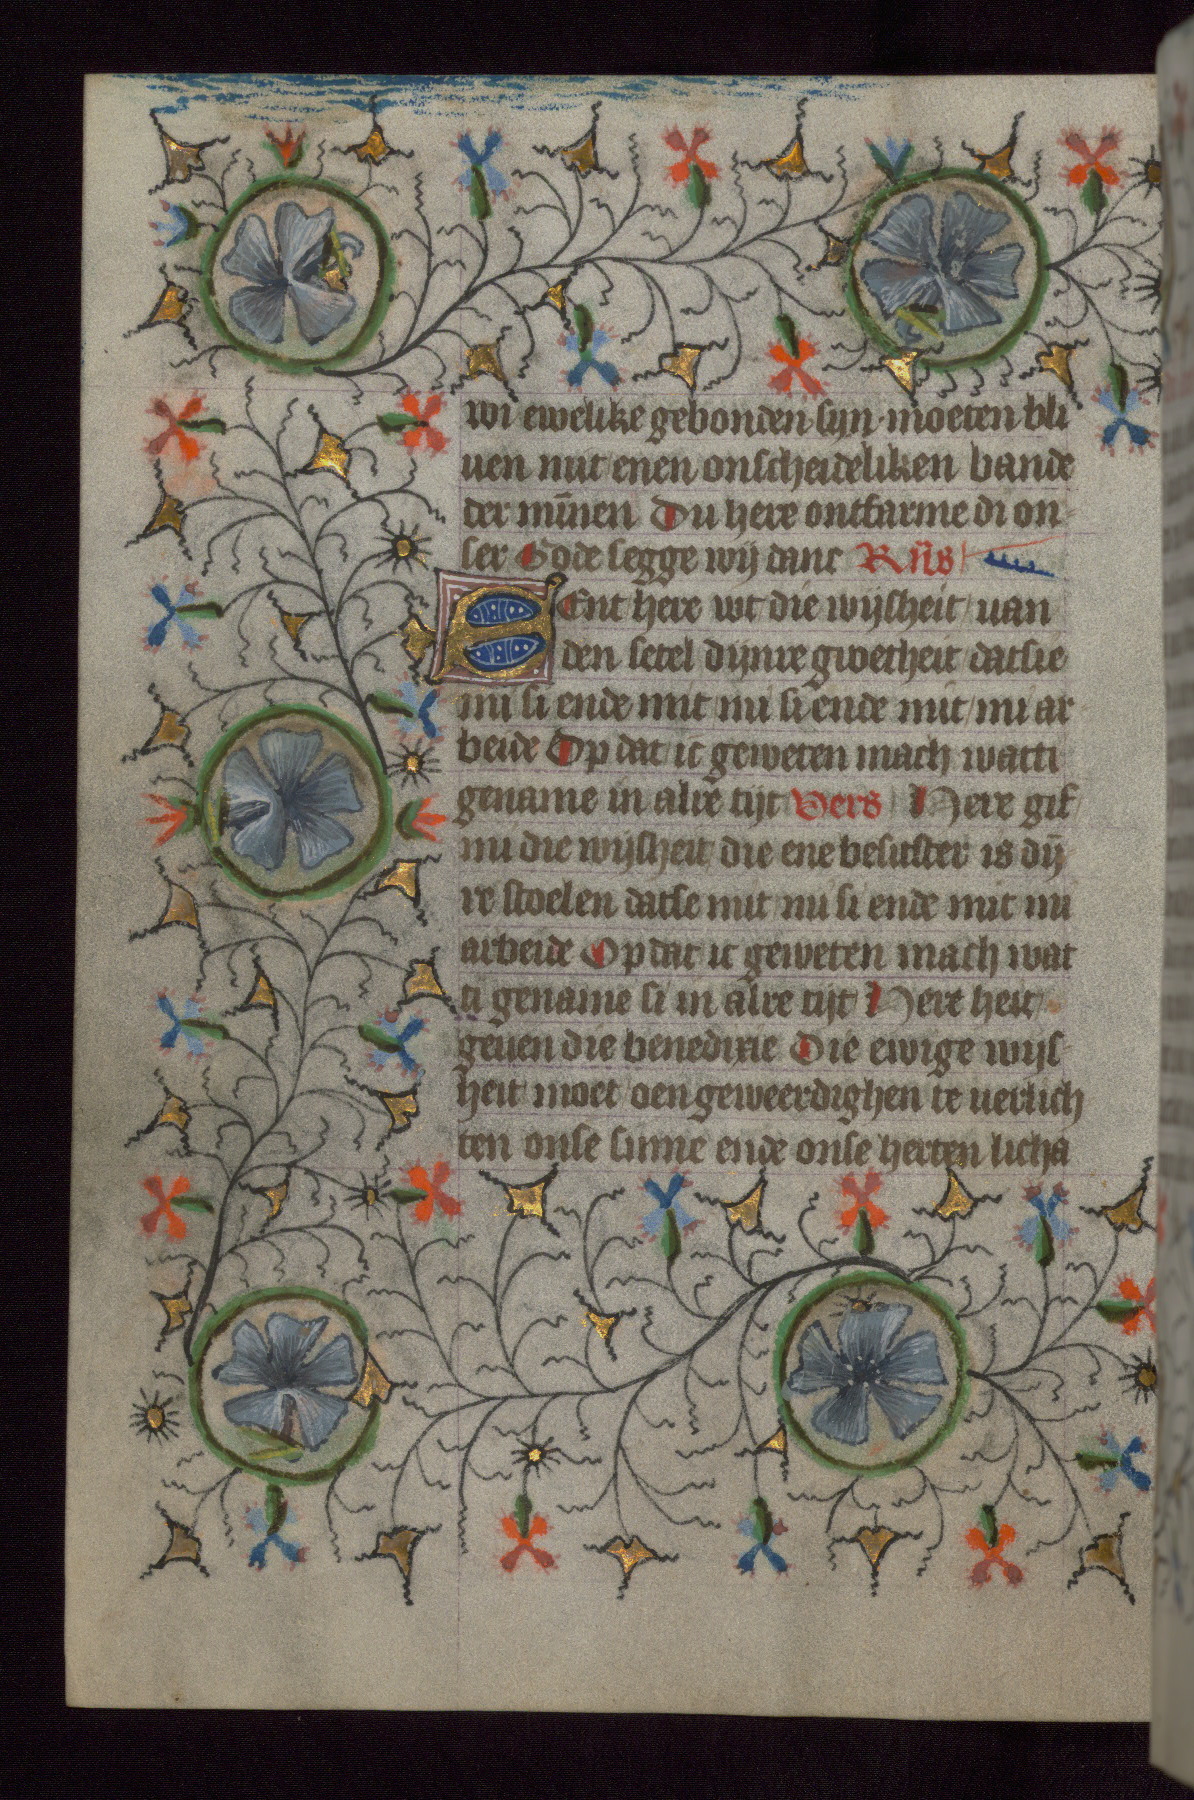 wi ewelike gebonden syn moeten bli
uen mit enen onscheideliken bande
der mīnen Du here ontfarme di on
ser Gode segge wij danc Rn̄s
Eent here wt die wijsheit uan
den setel dijnre groetheit datsie
mi si ende mit mi si ende mit mi ar
beide Op dat ic geweten mach watti
gename in alre tijt Vers Here gif
mi die wijsheit die ene besitster is dij̄
re stoelen datse mit mi si ende mit mi
arbeide Op dat ic geweten mach wat
ti gename si in alre tijt Here heit
geuen die benedixie Die ewige wijs
heit moet oen geweerdighen te uerlich
ten onse sinne ende onse herten licha